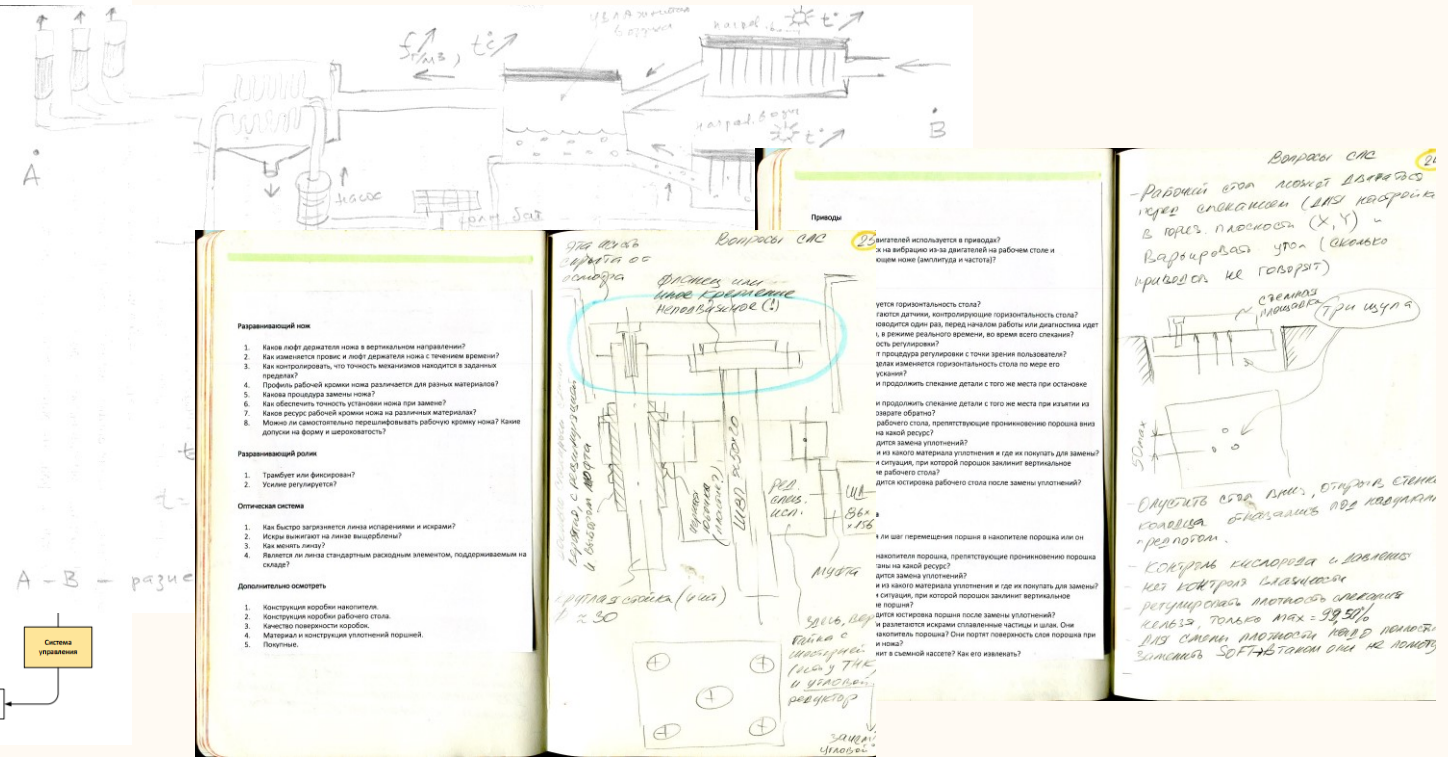 fг/м3, t°c
нагрев. t°
нагрев. воды t°
A
B
насос
A – B – разме
Система
управления
Разравнивающий нож
1. Каков люфт держателя ножа в вертикальном направлении?
2. Как изменяется провис и люфт держателя ножа с течением времени?
3. Как контролировать, что точность механизмов находится в заданных
пределах?
4. Профиль рабочей кромки ножа различается для разных материалов?
5. Какова процедура замены ножа?
6. Как обеспечить точность установки ножа при замене?
7. Каков ресурс рабочей кромки ножа на различных материалах?
8. Можно ли самостоятельно перешлифовывать рабочую кромку ножа? Какие
допуски на форму и шероховатость?
Разравнивающий ролик
1. Трамбует или фиксирован?
2. Усилие регулируется?
Оптическая система
1. Как быстро загрязняется линза испарениями и искрами?
2. Искры выжигают на линзе выщерблены?
3. Как менять линзу?
4. Является ли линза стандартным расходным элементом, поддерживаемым на
складе?
Дополнительно осмотреть
1. Конструкция коробки накопителя.
2. Конструкция коробки рабочего стола.
3. Качество поверхности коробок.
4. Материал и конструкция уплотнений поршней.
5. Покупные.
Вопросы СЛС
эта часть
скрыта от
осмотра
фланец или
иное крепление
неподвижное (!)
и выбором люфта
ШВП ≈50х20
ред.
спец.
исп.
86х
х156
муфта
круглая стойка (4 шт)
≈ 30
здесь
гайка с
шестерней
и угловой
редуктор
угловой
Приводы
вигателей используется в приводах?
к на вибрацию из-за двигателей на рабочем столе и
ющем ноже (амплитуда и частота)?
уется горизонтальность стола?
гаются датчики, контролирующие горизонтальность стола?
оводится один раз, перед началом работы или диагностика идет
, в режиме реального времени, во время всего спекания?
ость регулировки?
т процедура регулировки с точки зрения пользователя?
делах изменяется горизонтальность стола по мере его
ускания?
и продолжить спекание детали с того же места при остановке
и продолжить спекание детали с того же места при изъятии из
озврате обратно?
рабочего стола, препятствующие проникновению порошка вниз
на какой ресурс?
дится замена уплотнений?
и из какого материала уплотнения и где их покупать для замены?
и ситуация, при которой порошок заклинит вертикальное
е рабочего стола?
дится юстировка рабочего стола после замены уплотнений?
в
и ли шаг перемещения поршня в накопителе порошка или он
накопителя порошка, препятствующие проникновению порошка
таны на какой ресурс?
дится замена уплотнений?
и из какого материала уплотнения и где их покупать для замены?
и ситуация, при которой порошок заклинит вертикальное
ие поршня?
дится юстировка поршня после замены уплотнений?
и разлетаются искрами сплавленные частицы и шлак. Они
накопитель порошка? Они портят поверхность слоя порошка при
и ножа?
жит в съемной кассете? Как его извлекать?
Вопросы СЛС
- Рабочий стол может двигаться
перед спеканием (для настройки
в гориз. плоскости (X, Y) и
варьировать угол (сколько
приводов не говорят)
съемная
площадка
три щупа
50max
- Опустить стол вниз, открыв стенки
колодца отказались под надуманным
предлогом.
- Контроль кислорода и давления
- нет контроля влажности
- регулировать плотность спекания
нельзя, только max = 99,50%
- для смены плотности надо полность
заменить SOFT → в таком они не помогу